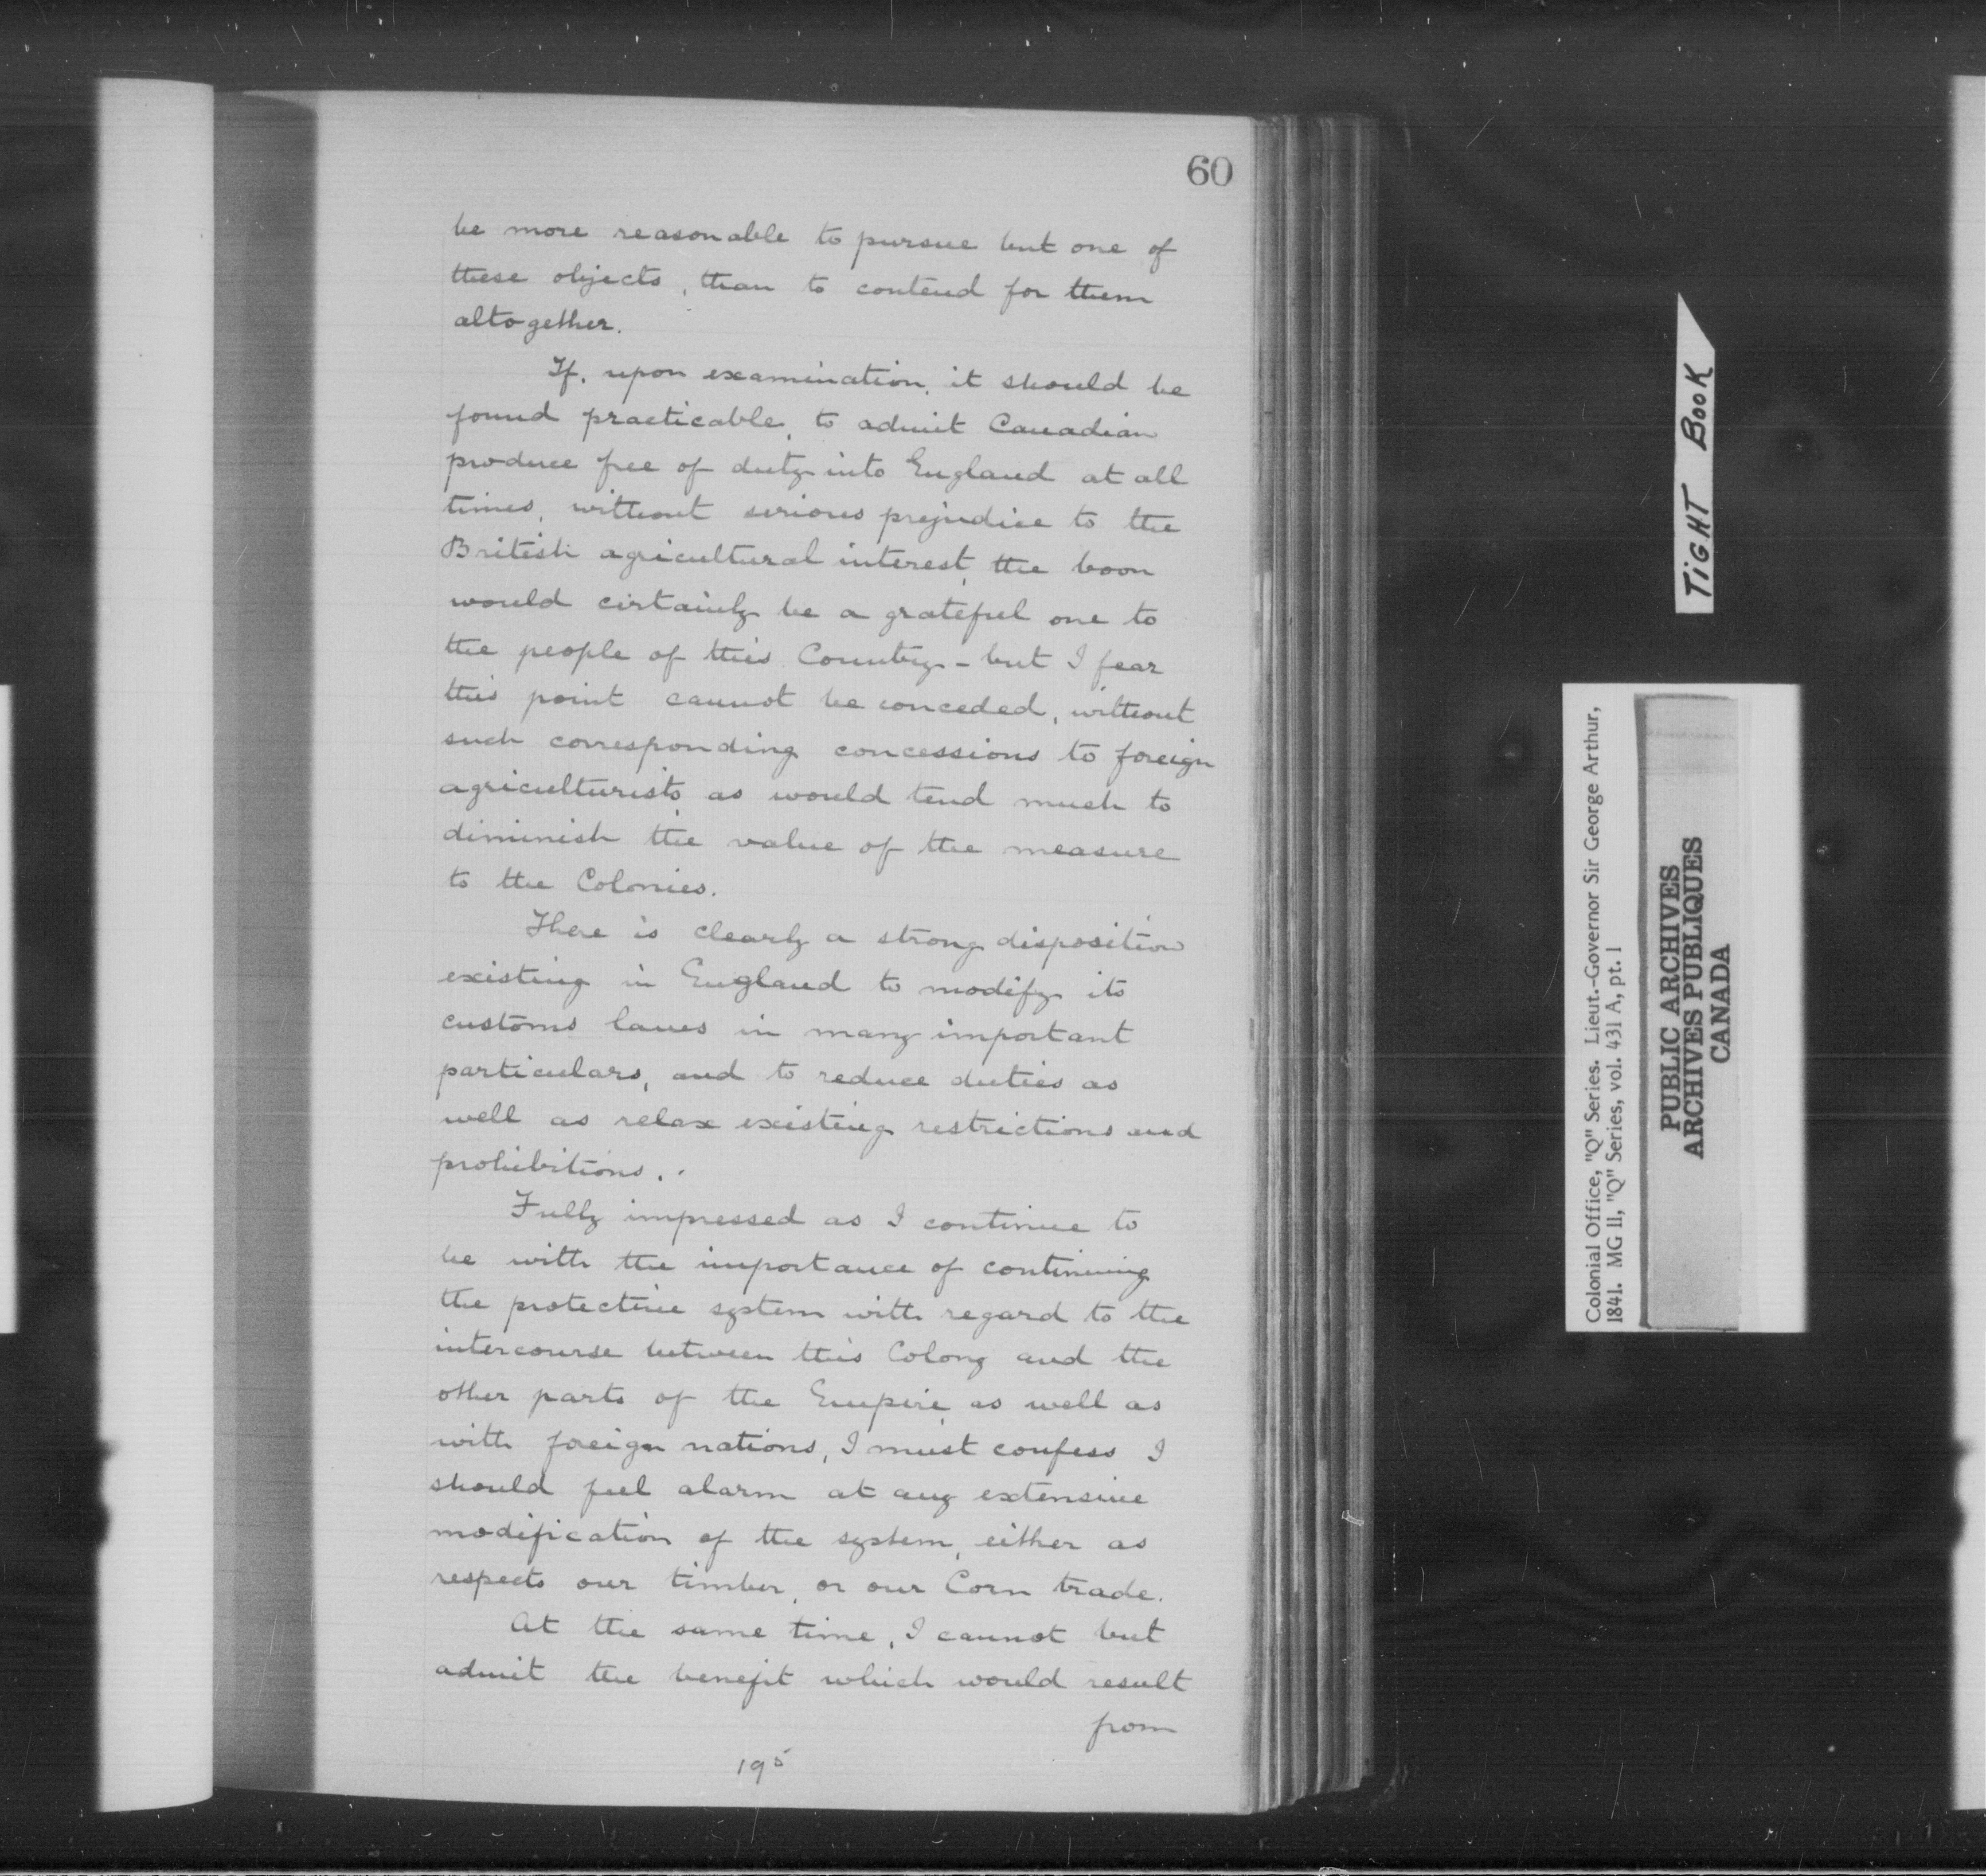 60
be more reasonable to pursue but one of
these objects, than to contend for them
altogether.
If, upon examination, it should be
found practicable, to admit Canadian
produce free of duty into England at all
times, without serious prejudice to the
British agricultural interest, the boon
would certainly be a grateful one to
the people of this Country - but I fear
this point cannot be conceded, without
such corresponding concessions to foreign
agriculturists as would tend much to
diminish the value of the measure
to the Colonies.
There is clearly a strong disposition
existing in England to modify its
customs laws in many important
particulars, and to reduce duties as
well as relax existing restrictions and
prohibitions.
Fully impressed as I continue to
be with the importance of continuing
the protective system with regard to the
intercourse between this Colony and the
other parts of the Empire as well as
with foreign nations, I must confess I
should feel alarm at any extensive
modification of the system, either as
respects our timber, or our Corn trade.
At the same time, I cannot but
admit the benefit which would result
from
195
TIGHT BOOK
Colonial Office, "Q" Series. Lieut.-Governor Sir George Arthur,
1841. MG 11, "Q" Series, vol. 431 A, pt. 1
PUBLIC ARCHIVES
ARCHIVES PUBLIQUES
CANADA